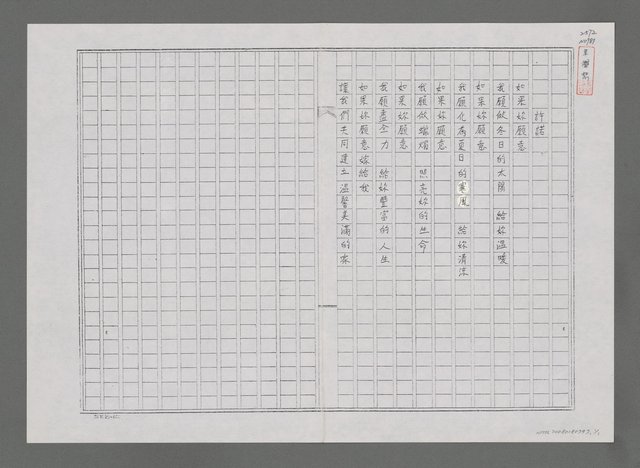 許諾
如果妳願意
我願做冬日的太陽　給妳溫暖
如果妳願意
我願化為夏日的寒風　給妳清涼
如果妳願意
我願做蠟燭　照亮妳的生命
如果妳願意
我願盡全力　給妳豐富的人生
如果妳願意嫁給我
讓我們共同建立溫馨美滿的家